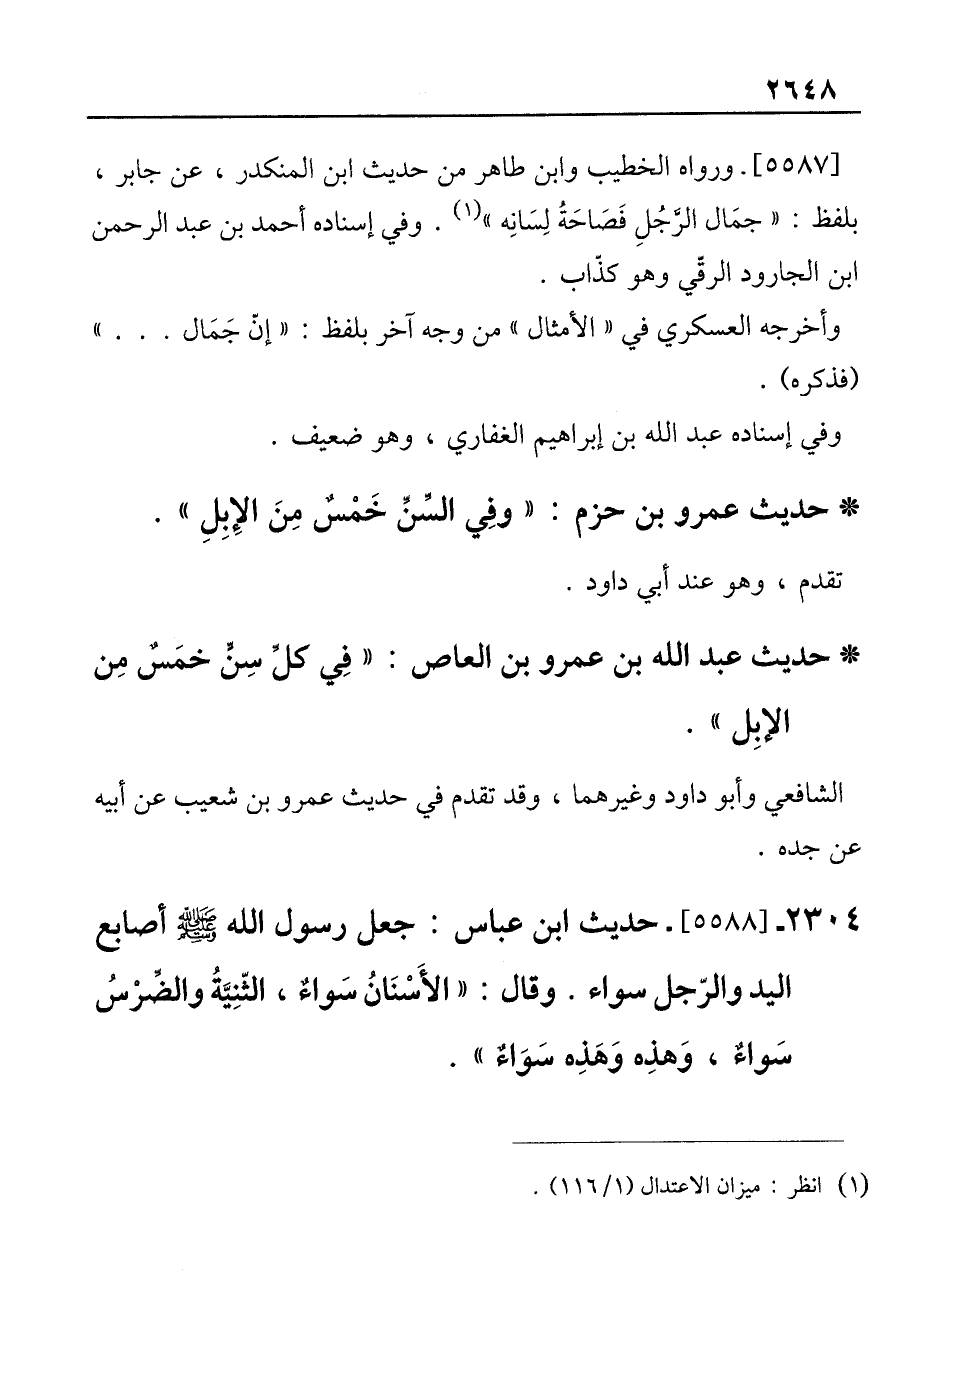 ٢٦٤٨
[٥٥٨٧]. ورواه الخطيب وابن طاهر من حديث ابن المنكدر ، عن جابر ،
بلفظ : « جمَال الرَّجُلِ فَصَاحَةُ لِسَانِه »(١) . وفي إسناده أحمد بن عبد الرحمن
ابن الجارود الرقّي وهو كذّاب .
وأخرجه العسكري في « الأمثال » من وجه آخر بلفظ : « إنّ جَمَال . . . »
(فذكره) .
وفي إسناده عبد الله بن إبراهيم الغفاري ، وهو ضعيف .
* حديث عمرو بن حزم : « وفِي السِّنِّ خَمْسٌ مِنَ الإِبِلِ » .
تقدم ، وهو عند أبي داود .
* حديث عبد الله بن عمرو بن العاص : « فِي كلِّ سِنٍّ خمَسٌ مِن
الإبِل » .
الشافعي وأبو داود وغيرهما ، وقد تقدم في حديث عمرو بن شعيب عن أبيه
عن جده .
٢٣٠٤ـ [٥٥٨٨]. حديث ابن عباس : جعل رسول الله ﷺ أصابع
اليد والرّجل سواء . وقال : « الأَسْنَانُ سَواءٌ ، الثّنِيَّةُ والضِّرْسُ
سَواءٌ ، وَهذِه وَهَذِه سَوَاءٌ » .
(١) انظر : ميزان الاعتدال (١١٦/١) .